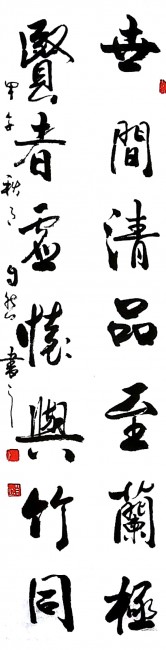 世間清品至蘭極
賢者虛懷與竹同
甲午秋月自然書之